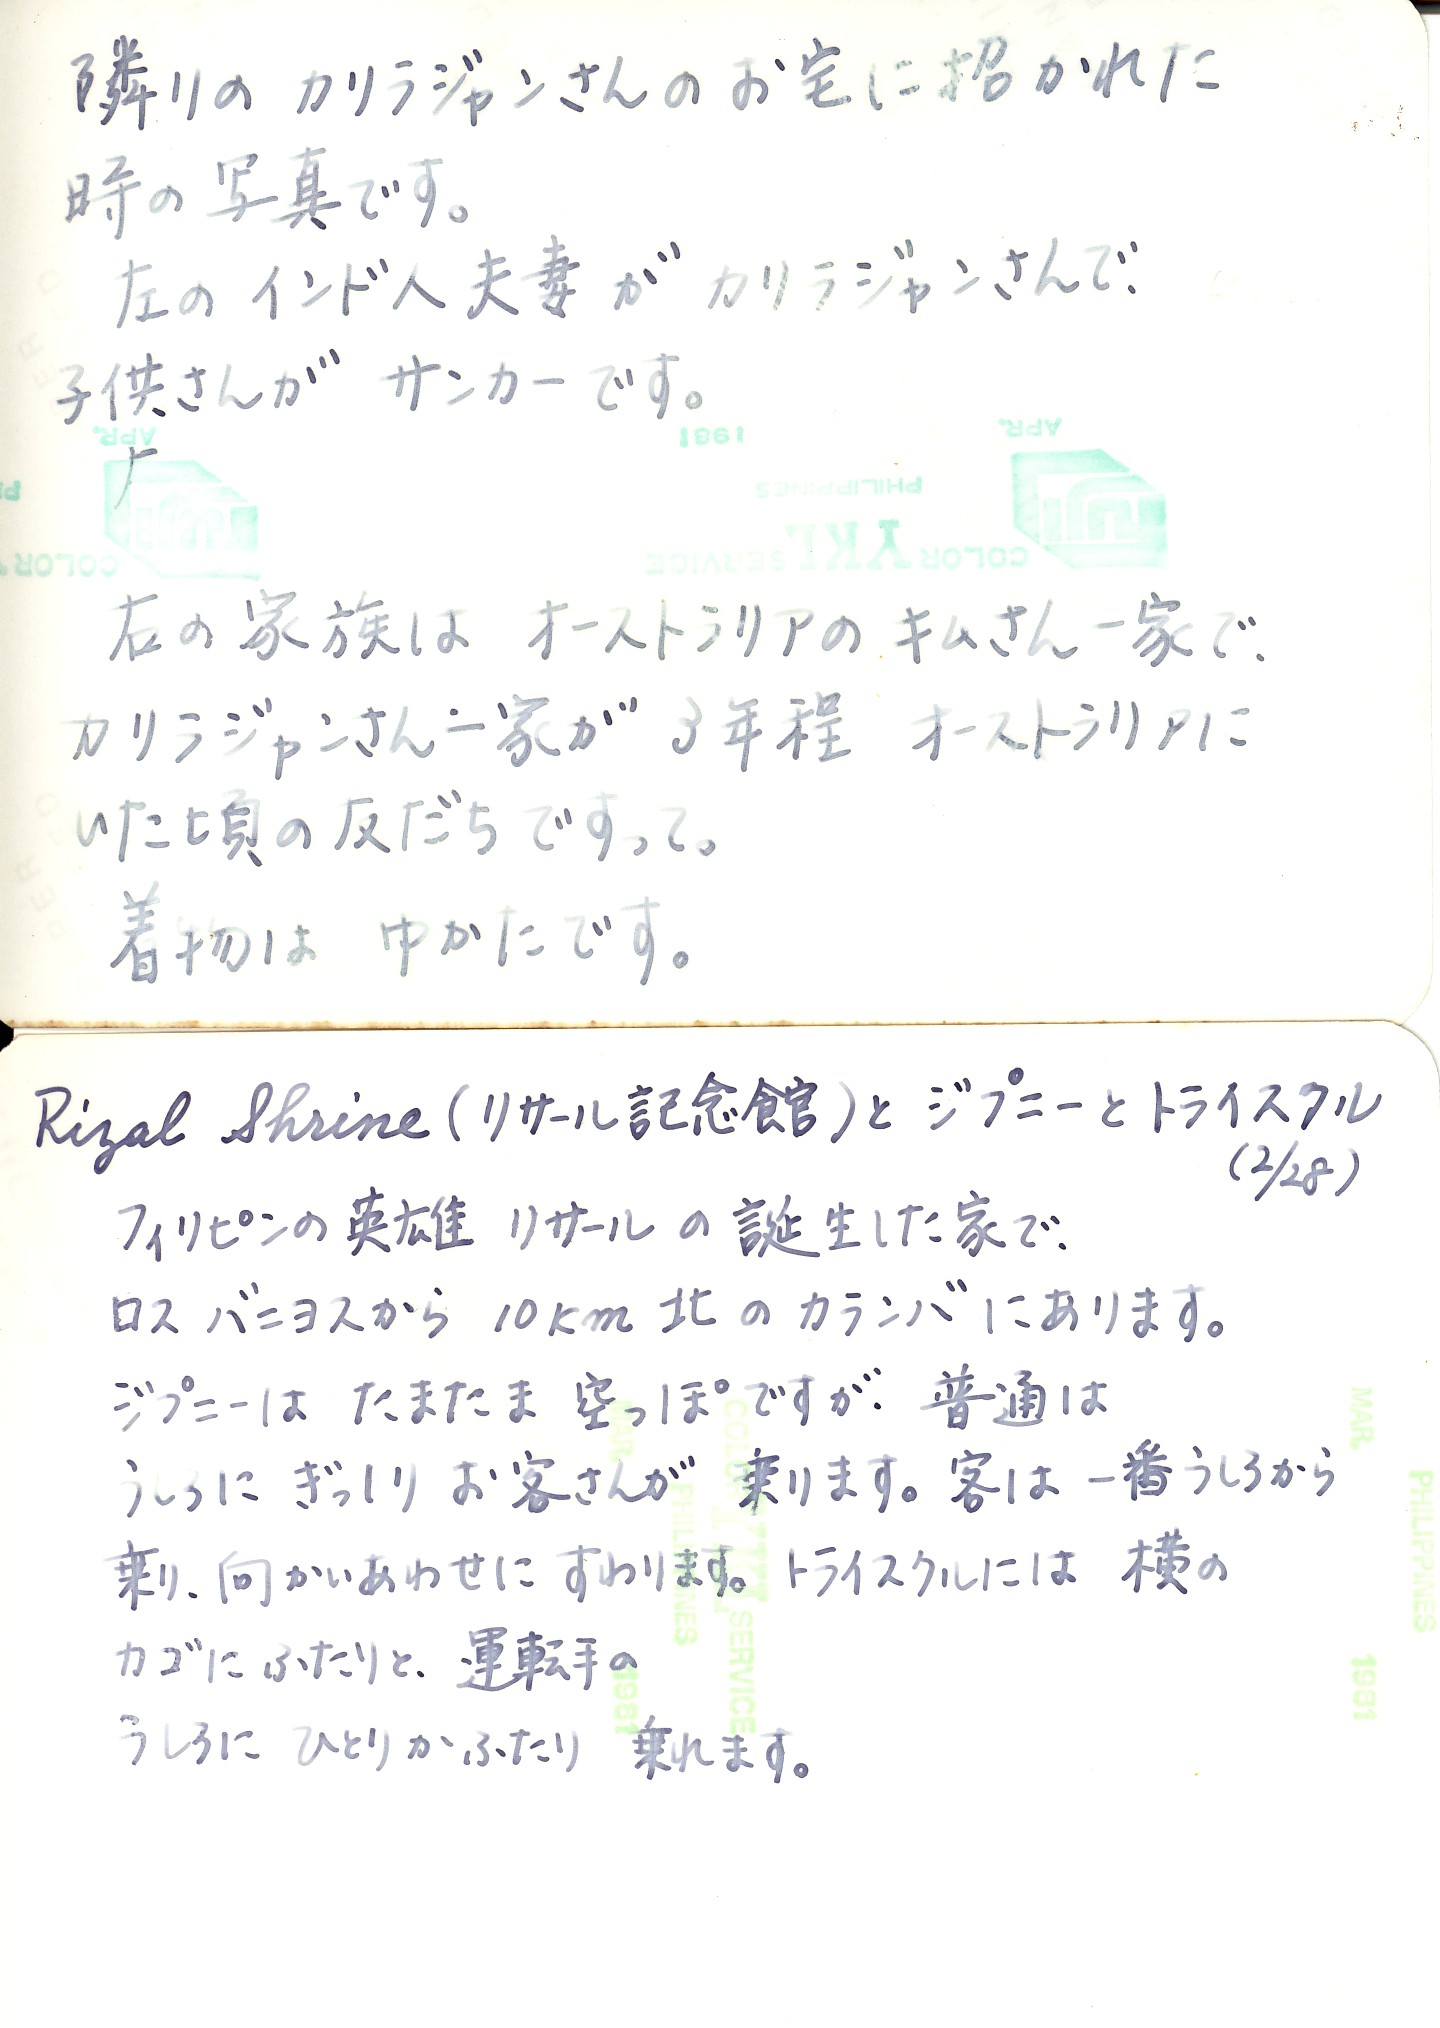 隣りの カリラジャンさんの お宅に招かれた
時の 写真です。
左の インド人 夫妻 が カリラジャンさんで、
子供さんが サンカーです。
APR. 1981 APR.
PHILIPPINES
COLOR YKL SERVICE COLOR
右の 家族は オーストラリアの キムさん一家で、
カリラジャンさん一家が 3年程 オーストラリアに
いた頃の友だちですって。
着物は ゆかたです。
Rizal Shrine (リサール記念館)と ジプニーと トライスクル
(2/28)
フィリピンの 英雄 リサール の 誕生した家で、
ロス バニヨスから 10km 北 の カランバにあります。
ジプニーは たまたま 空っぽですが、普通は
うしろに ぎっしり お客さんが 乗ります。客は 一番うしろから
乗り、向かいあわせに すわります。トライスクルには 横の
カゴに ふたりと、運転手の
うしろに ひとりか ふたり 乗れます。
MAR. 1981
PHILIPPINES
COLOR YKL SERVICE
MAR. 1981
PHILIPPINES